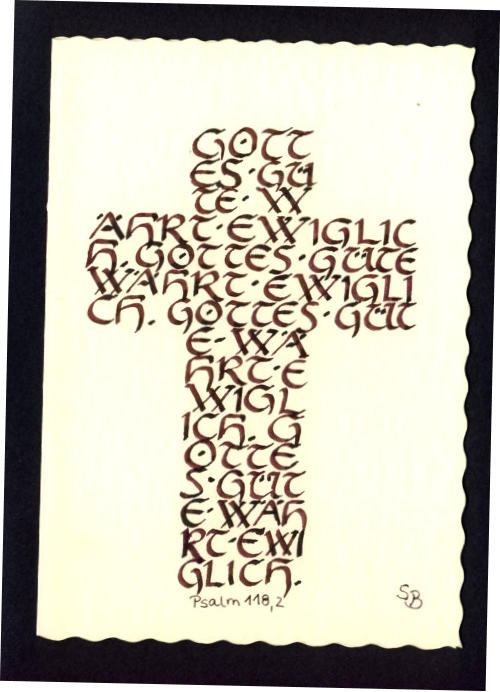 GOTT
ES·GÜ
TE·W
ÄHRT·EWIGLIC
H.GOTTES·GÜTE
WÄHRT·EWIGLI
CH.GOTTES·GÜT
E·WÄ
HRT·E
WIGL
ICH.G
OTTE
S·GÜT
E·WÄH
RT·EWI
GLICH.
Psalm 118,2
SB